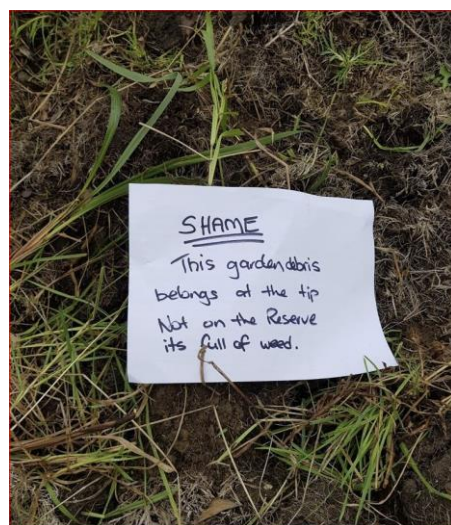 SHAME
This garden debris
belongs at the tip
Not on the Reserve
its full of weed.